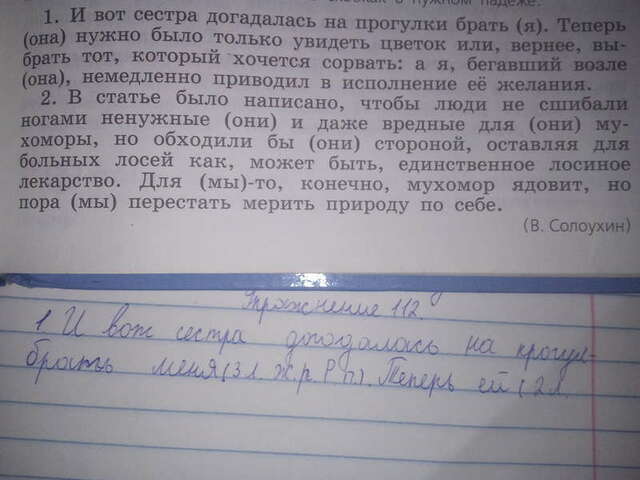 скобках в нужном падеже.
1. И вот сестра догадалась на прогулки брать (я). Теперь
(она) нужно было только увидеть цветок или, вернее, вы-
брать тот, который хочется сорвать: а я, бегавший возле
(она), немедленно приводил в исполнение её желания.
2. В статье было написано, чтобы люди не сшибали
ногами ненужные (они) и даже вредные для (они) му-
хоморы, но обходили бы (они) стороной, оставляя для
больных лосей как, может быть, единственное лосиное
лекарство. Для (мы)-то, конечно, мухомор ядовит, но
пора (мы) перестать мерить природу по себе.
(В. Солоухин)
Упражнение 112.
1 И вот сестра догодалась на прогул-
брать меня (3 л. ж.р. Р.п.). Теперь ей (2 л.